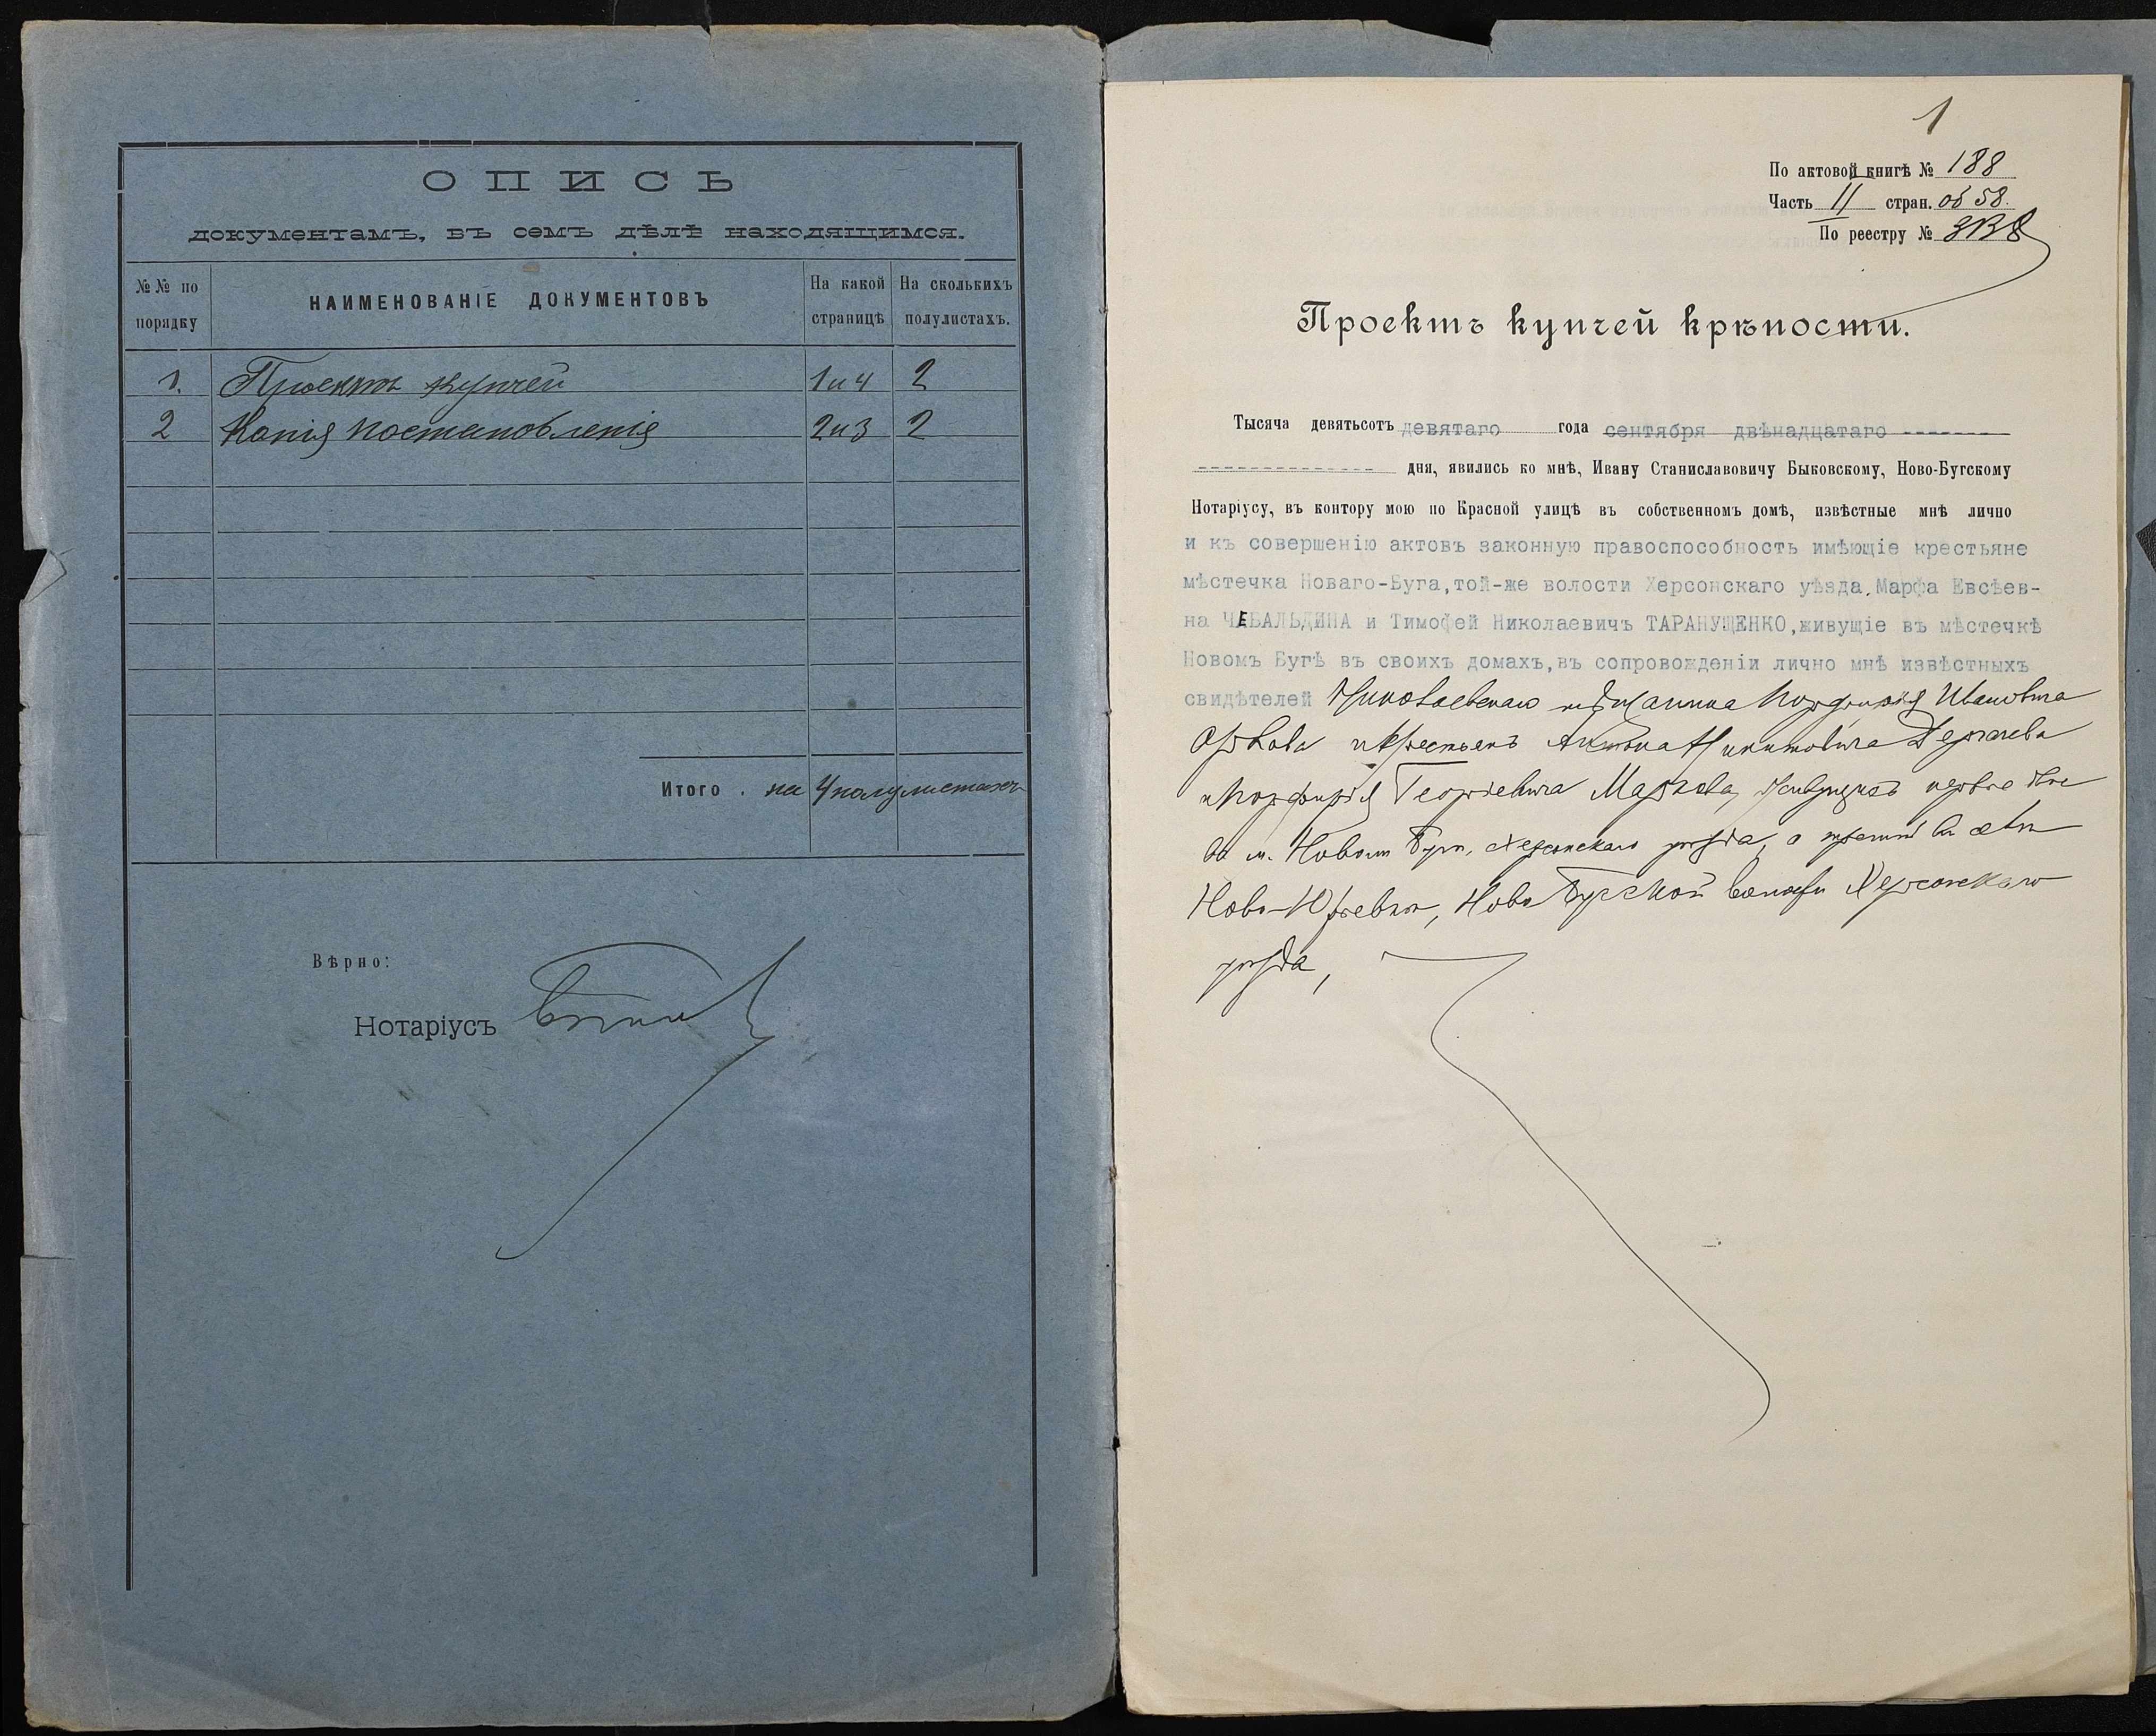 ОПИСЬ
документамъ, въ семъ дѣлѣ находящимся.
№№ по порядку
НАИМЕНОВАНІЕ ДОКУМЕНТОВЪ
На какой страницѣ
На сколькихъ полулистахъ.
1. Проектъ купчей 1 и 4 2
2 Копія постановленія 2 и 3 2
Итого . на 4 полулистахъ
Вѣрно:
Нотаріусъ
1
По актовой книгѣ № 188
Часть II стран. об 58.
По реестру №
Проектъ купчей крѣпости.
Тысяча девятьсотъ девятаго года сентября двѣнадцатаго
дня, явились ко мнѣ, Ивану Станиславовичу Быковскому, Ново-Бугскому
Нотаріусу, въ контору мою по Красной улицѣ въ собственномъ домѣ, извѣстные мнѣ лично
и къ совершенію актовъ законную правоспособность имѣющіе крестьяне
мѣстечка Новаго-Буга,той-же волости Херсонскаго уѣзда,Марфа Евсѣев-
на ЧЕБАЛЬДИНА и Тимофей Николаевичъ ТАРАНУЩЕНКО,живущіе въ мѣстечкѣ
Новомъ Бугѣ въ своихъ домахъ,въ сопровожденіи лично мнѣ извѣстныхъ
свидѣтелей Николаевскаго мѣщанина Порфирія Ивановича
Орлова и крестьянъ Антона Никитовича Дергачева
и Порфирія Георгіевича Маркова, живущихъ первые двое
въ м. Новомъ Бугѣ, Херсонскаго уѣзда, а третій въ селѣ
Ново-Юрьевкѣ, Ново Бугской волости Херсонскаго
уѣзда,